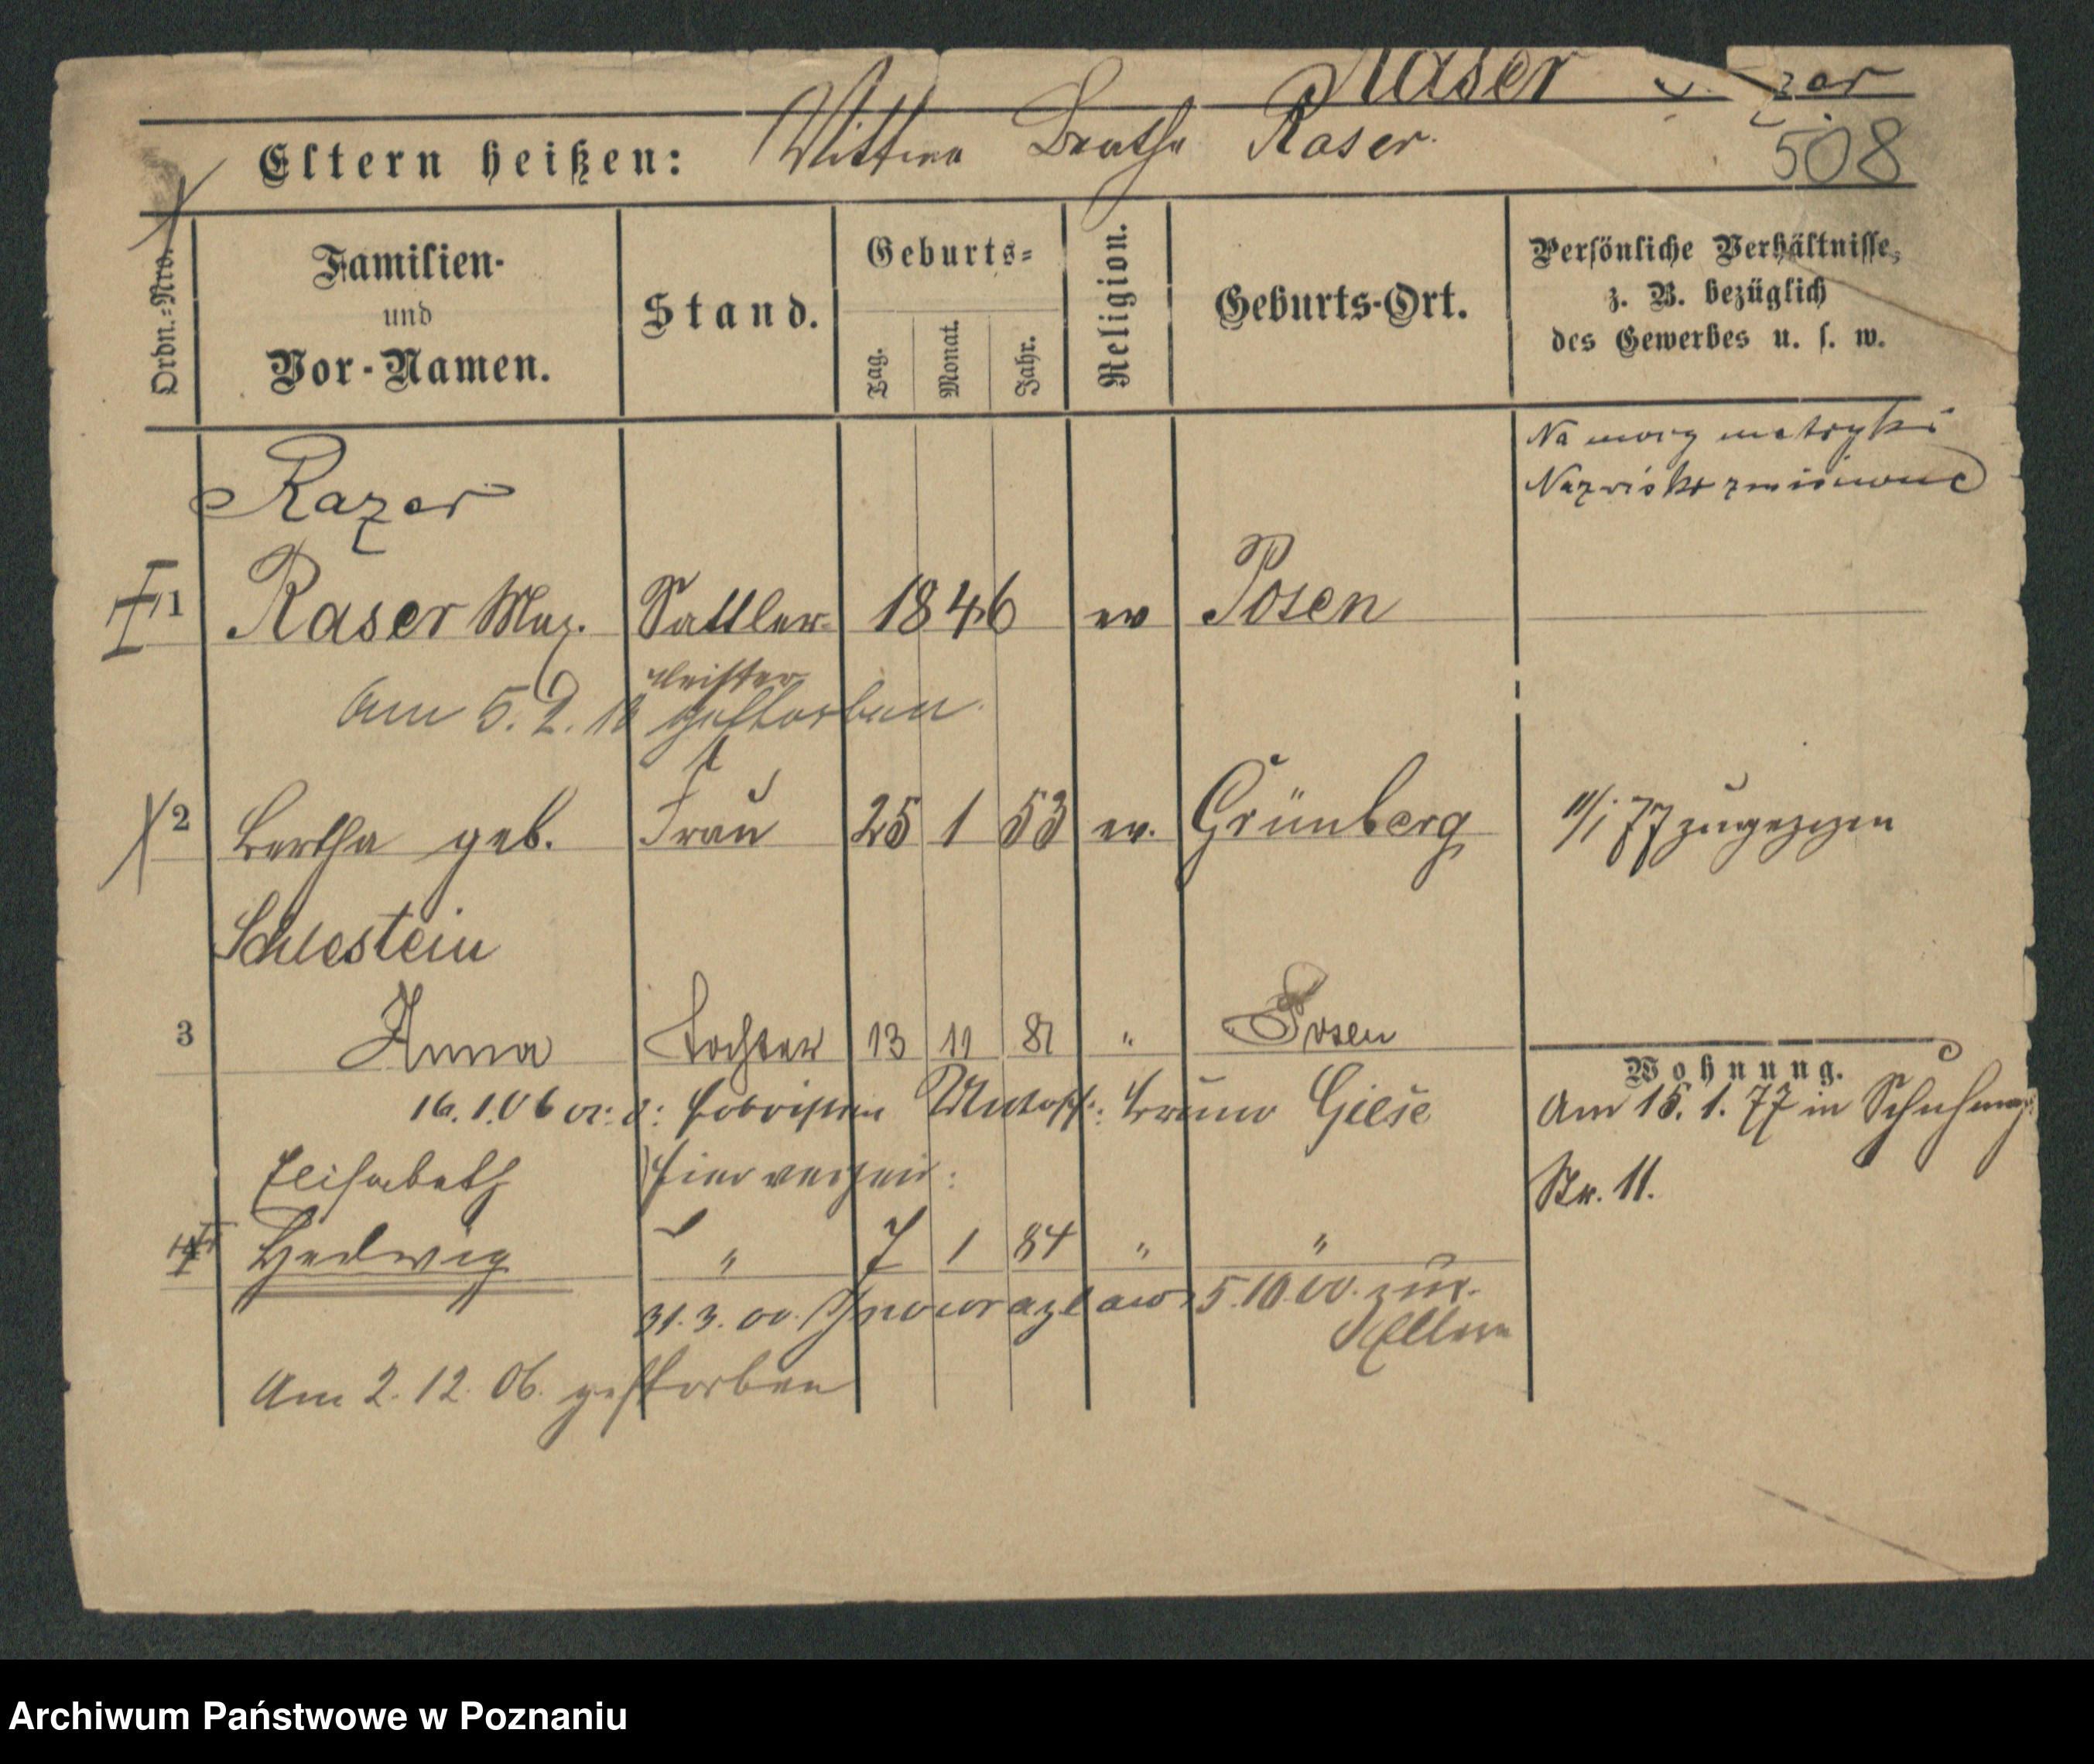 Raser
Eltern heißen: Wittwe Beathe Raser.
508
Ordn.=Nro.
Familien- und Vor-Namen.
Stand.
Geburts=
Tag. Monat. Jahr.
Religion.
Geburts-Ort.
Persönliche Verhältnisse,
z. B. bezüglich
des Gewerbes u. s. w.
Na mocy metryki
Nazwisko zmieniono
Razer
1 Raser Max. Sattler- 1846 ev Posen
meister
Am 5. 2. 10 gestorben.
2 Bertha geb. Frau 25 1 53 ev. Grünberg 11/1 77 zugezogen
Schlestein
3 Anna Tochter 13 11 81 " Posen
Wohnung.
16.1.06 Bruno Giese
Am 15. 1. 77 in Schuhm
Str. 11.
Elisabeth
4 Hedwig " 7 1 84 " "
31.3.00. Inowrazlaw 5.10.00. zur.
Eltern
Am 2. 12. 06. gestorben
Archiwum Państwowe w Poznaniu